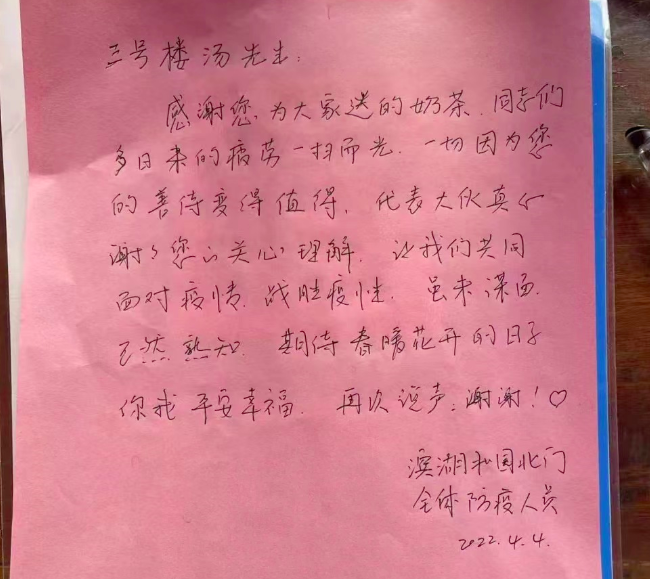 三号楼汤先生：
感谢您为大家送的奶茶.同志们
多日来的疲劳一扫而光.一切因为您
的善待变得值得.代表大伙真心
谢谢您的关心理解.让我们共同
面对疫情.战胜疫情.虽未谋面.
已然熟知.期待春暖花开的日子
你我平安幸福.再次说声：谢谢！♡
滨湖和园北门
全体防疫人员
2022.4.4.